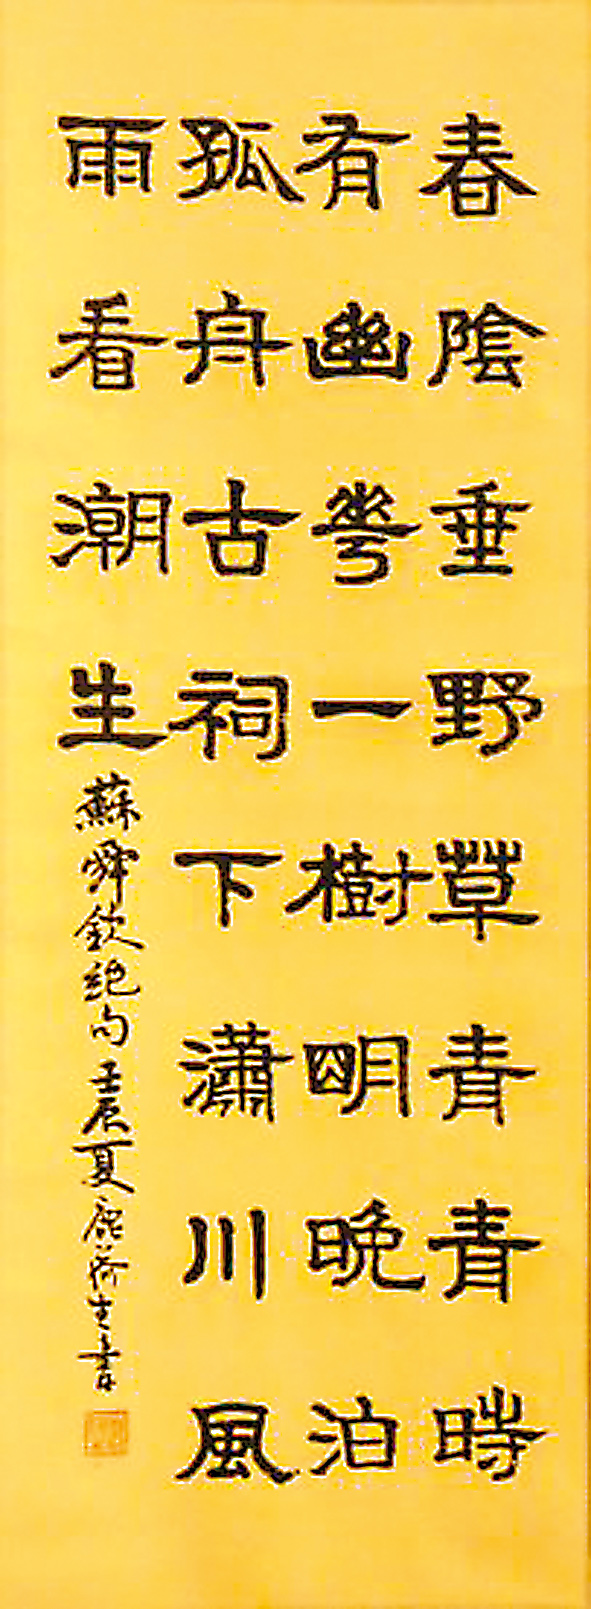 春陰垂野草青青時
有幽花一樹明晚泊
孤舟古祠下瀟川風
雨看潮生
蘇舜欽絕句壬辰夏生書